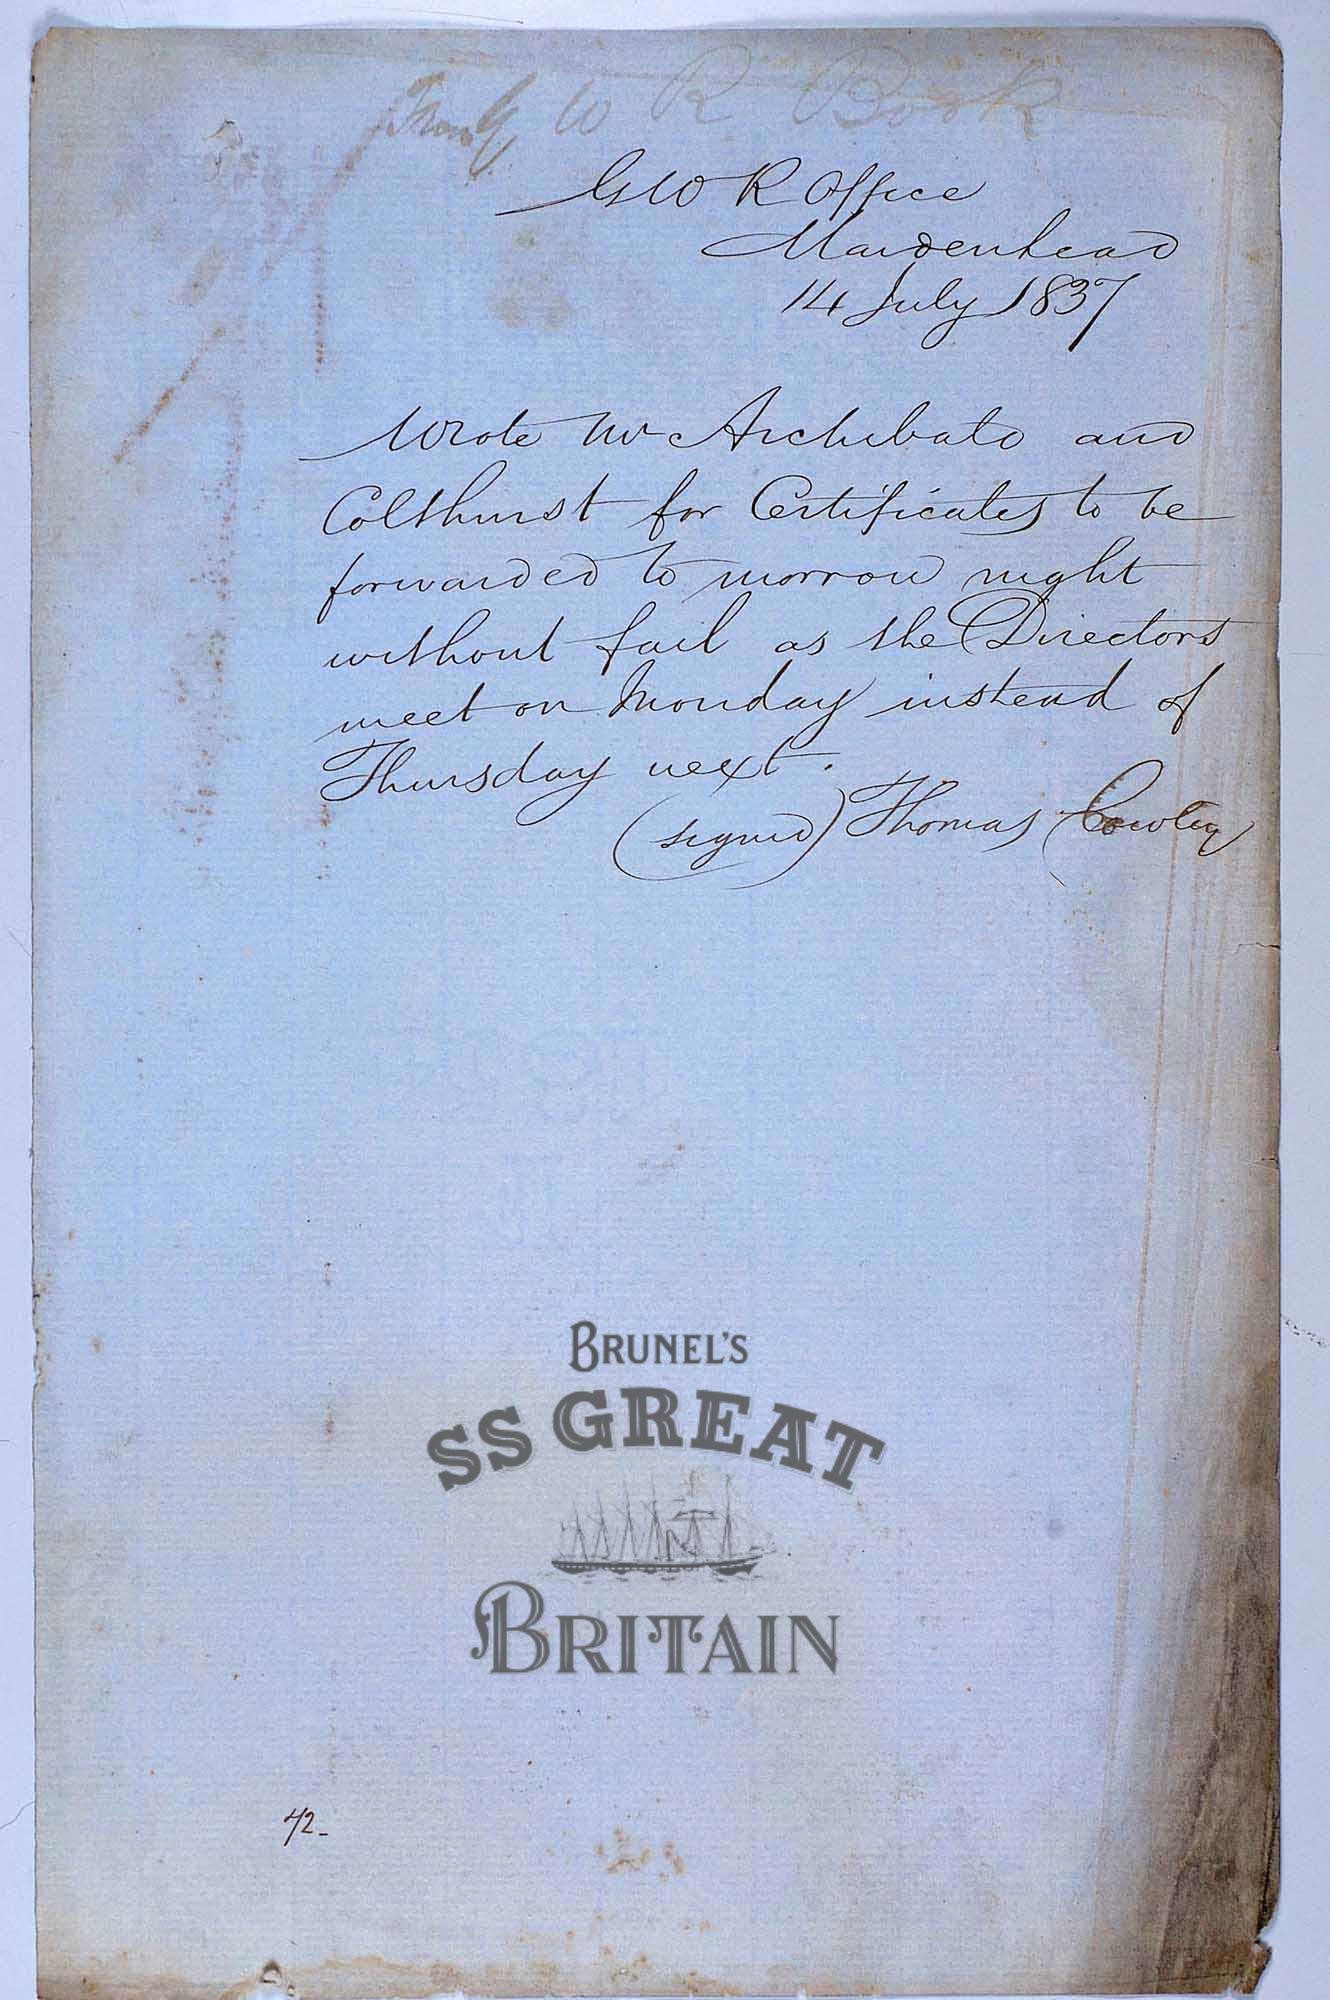 W R Book
GWR Office
Maidenhead
14 July 1837
Wrote Mr Archibald and
Colthurst for Certificates to be
forwarded to morrow night
without fail as the Directors
meet on Monday instead of
Thursday next.
(signed) Thomas Cowley
BRUNEL'S
SS GREAT
BRITAIN
72_